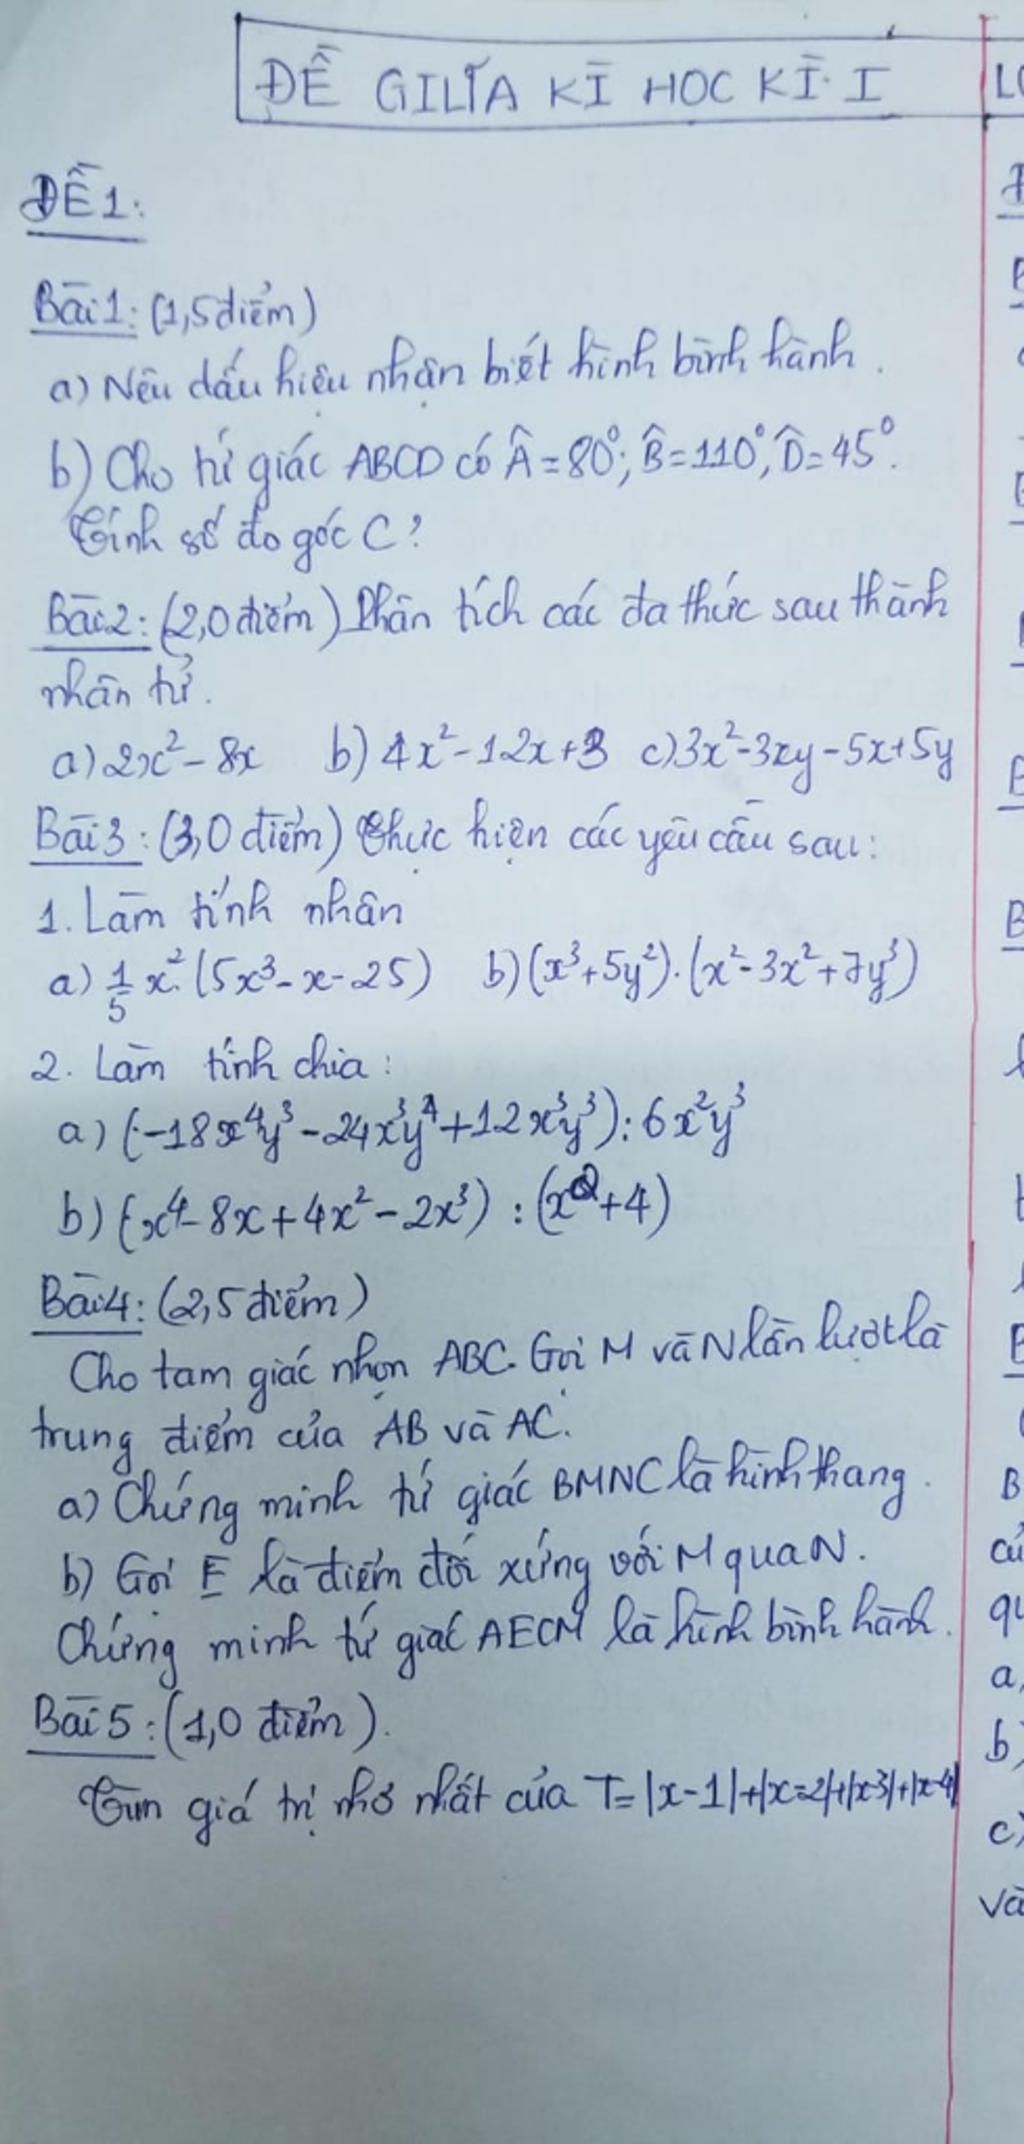 ĐỀ GIỮA KÌ HOC KÌ I
ĐỀ 1:
Bài 1: (1,5 điểm)
a) Nêu dấu hiệu nhận biết hình bình hành.
b) Cho tứ giác ABCD có Â = 80°; B̂ = 110°, D̂ = 45°.
Tính số đo góc C?
Bài 2: (2,0 điểm) Phân tích các đa thức sau thành
nhân tử.
a) 2x² - 8x b) 4x² - 12x + 3 c) 3x² - 3xy - 5x + 5y
Bài 3: (3,0 điểm) Thực hiện các yêu cầu sau:
1. Làm tính nhân
a) 1/5 x². (5x³ - x - 25) b) (x³ + 5y²) . (x² - 3x² + 7y³)
2. Làm tính chia:
a) (-18x⁴y³ - 24x³y⁴ + 12x³y³) : 6x²y³
b) (x⁴ - 8x + 4x² - 2x³) : (x² + 4)
Bài 4: (2,5 điểm)
Cho tam giác nhọn ABC. Gọi M và N lần lượt là
trung điểm của AB và AC.
a) Chứng minh tứ giác BMNC là hình thang.
b) Gọi E là điểm đối xứng với M qua N.
Chứng minh tứ giác AECM là hình bình hành.
Bài 5: (1,0 điểm).
Tìm giá trị nhỏ nhất của T = |x-1| + |x-2| + |x-3| + |x-4|